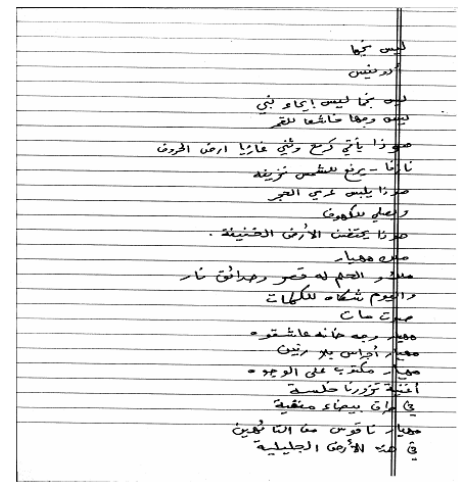 ليس نجما
أدونيس
ليس نجما ليس إيحاء نبي
ليس وجها خاشعا للقمر
هوذا يأتي كرمح وثني غازيا أرض الحروف
نازفا - يرفع للشمس نزيفه
هوذا يلبس عري الحجر
ويصلي للكهوف
هوذا يحتضن الأرض الخفيفة .
ملك مهيار
ملك والحلم له قصر وحدائق نار
واليوم شكاه للكلمات
صوت مات
مهيار وجه خانه عاشقوه
مهيار أجراس بلا رنين
مهيار مكتوب على الوجوه
أغنية تزورنا خلسة
في طرق بيضاء منفية
مهيار ناقوس من التائهين
في هذه الأرض الجليلية